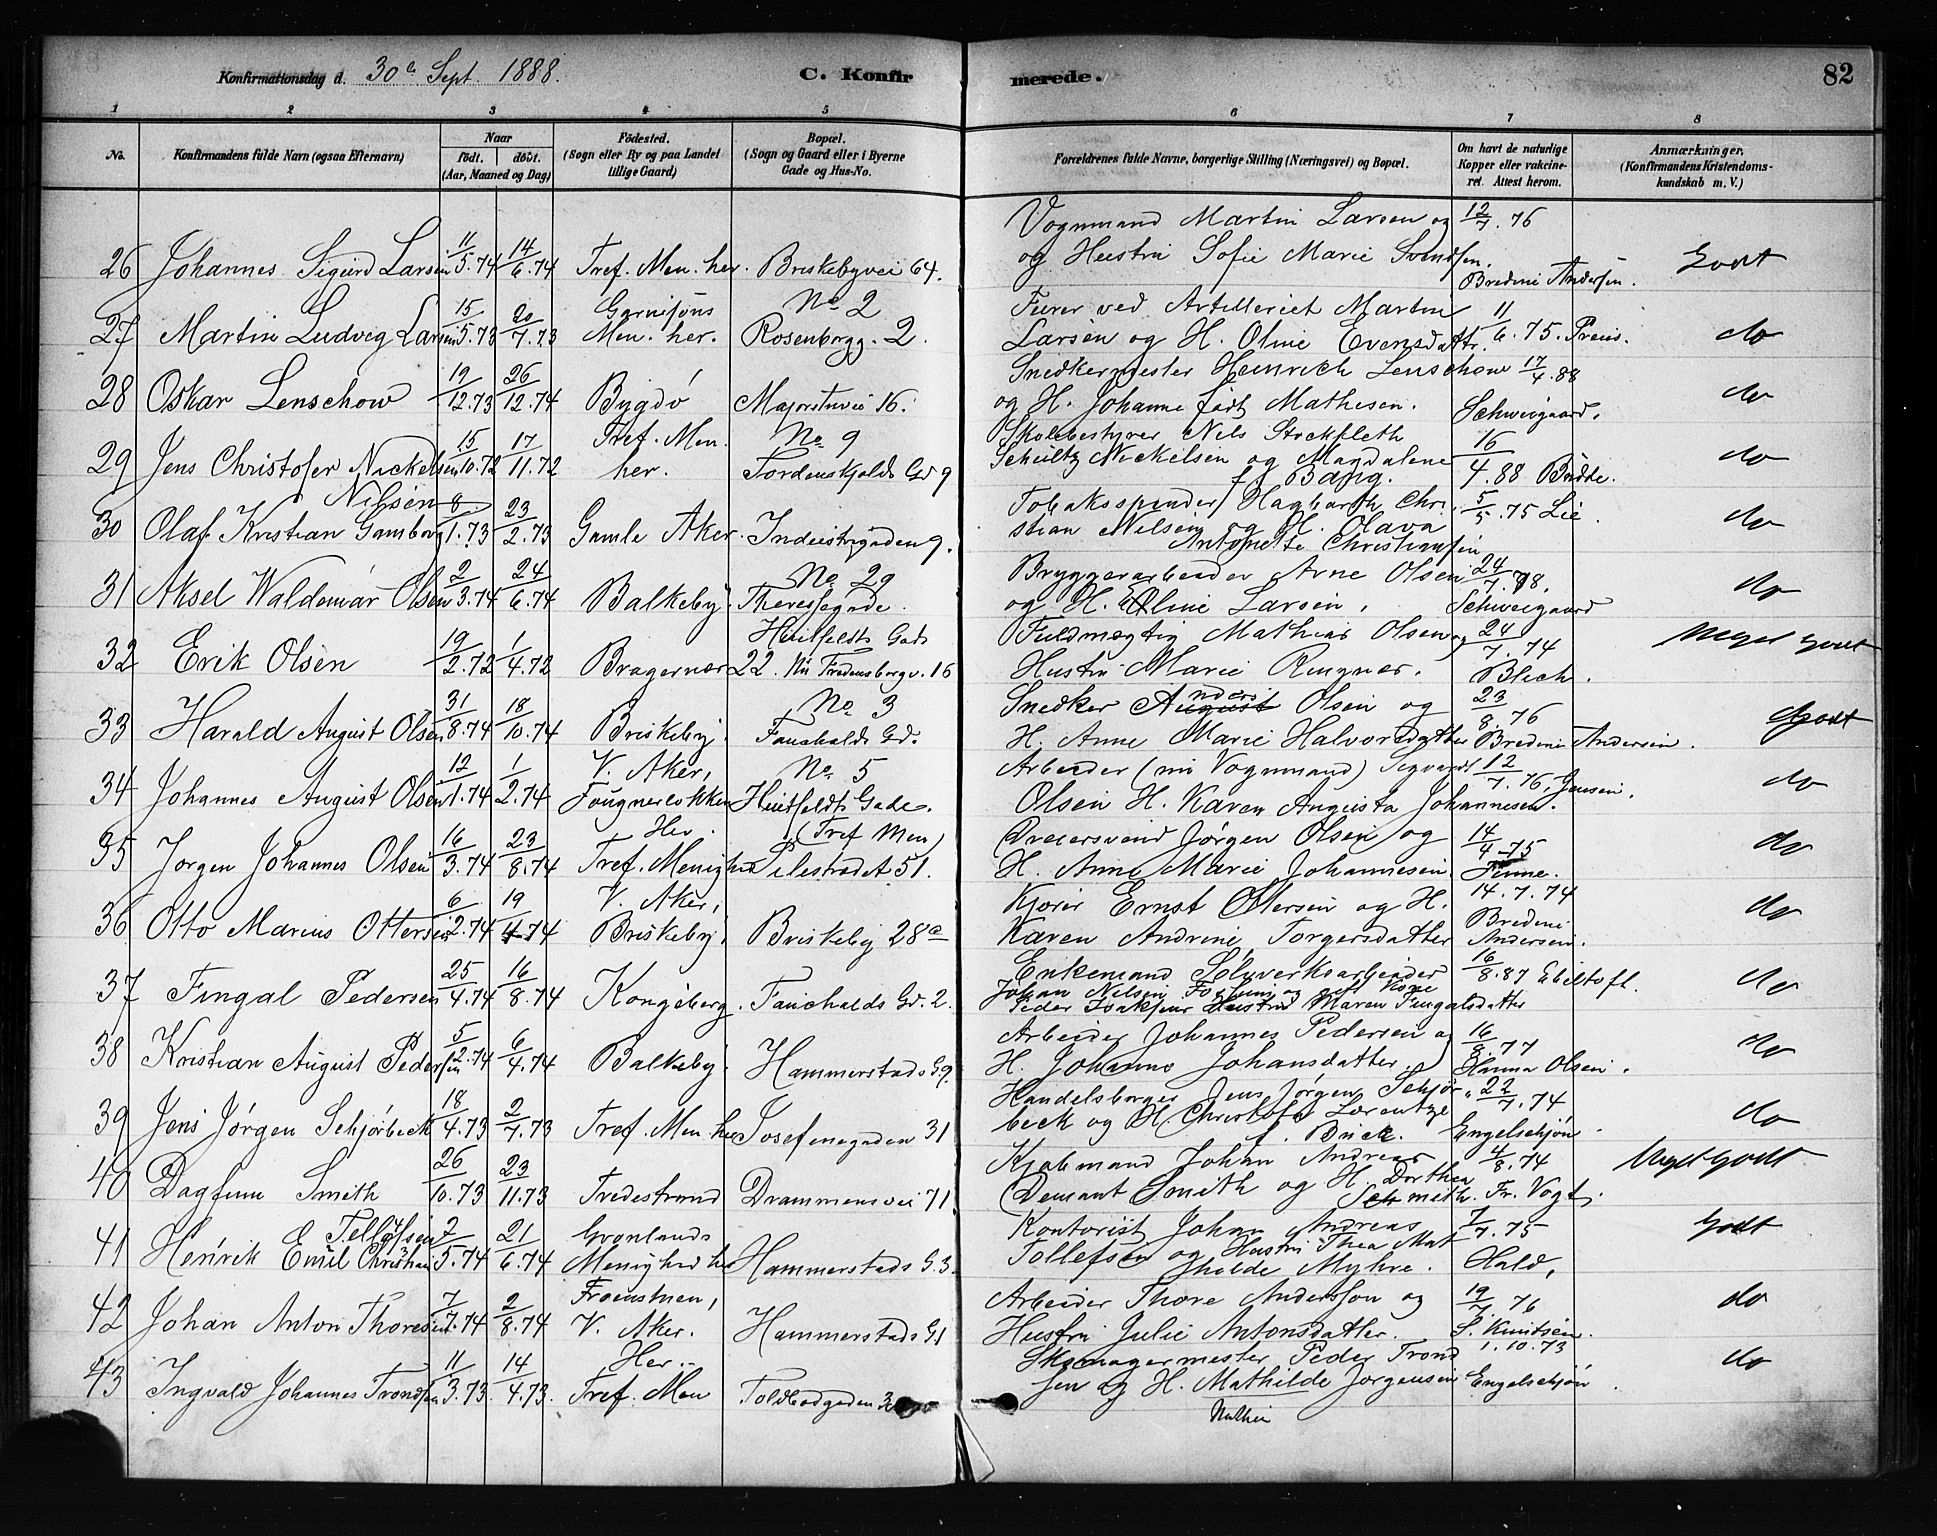 Konfirmationsdag d. 30te Sept. 1888. C. Konfirmerede. 82
1 2 3 4 5 6 7 8
No. Konfirmandens fulde Navn (ogsaa Efternavn) Naar födt. döbt. (Aar, Maaned og Dag) Födested. (Sogn eller By og paa Landet tillige Gaard) Bopæl. (Sogn og Gaard eller i Byerne Gade og Hus-No. Forældrenes fulde Navne, borgerlige Stilling (Næringsvei) og Bopæl. Om havt de naturlige Kopper eller vakcineret. Attest herom. Anmærkninger, (Konfirmandens Kristendomskundskab m. V.)
26 Johannes Sigurd Larsen 11/5.74 14/6.74 Tref. Men. her. Briskebyvei 64. Vognmand Martin Larsen og og Hustru Sofie Marie Svendsen. 12/7.76 Bredine Andersen. Godt
27 Martin Ludvig Larsen 15/5.73 20/7.73 Garnisons Men. her. No 2 Rosenborgg. 2. Furer ved Artilleriet Martin Larsen og H. Oline Evensdattr. 11/6.75. Preus. do
28 Oskar Lenschow 19/12.73 26/12.74 Bygdö Majorstuvei 16. Snedkermester Heinrich Lenschow og H. Johanne født Mathesen. 17/4.88 Schweigaard. do
29 Jens Christofer Nickelsen 15/10.72 17/11.72 Tref. Men. her. No 9 Tordenskjolds Gd 9 Skolebestyrer Nils Stockfleth Schultz Nickelsen og Magdalene f. Bang. 16/4.88 Budde. do
30 Olaf Kristian Gamborg Nilsen 8/1.73 23/2.73 Gamle Aker. Industrigaden 9. Tobaksspinder Hagbarth Christian Nilsen og H. Olava Antonette Christiansen 5/5.75 Lie do
31 Aksel Waldemar Olsen 2/3.74 24/6.74 Balkeby. No 29 Theresesgade. Bryggerarbeider Arne Olsen og H. Oline Larsen. 24/7.78, Schweigaard do
32 Erik Olsen 19/2.72 1/4.72 Bragernær Huitfeldts Gade 22. Nu Fredensborgv. 16 Fuldmægtig Mathias Olsen og Hustru Marie Ringner. 24/7.74 Blich. Meget Godt
33 Harald August Olsen 31/8.74 18/10.74 Briskeby. No 3 Fauchalds Gd. Snedker August Anders Olsen og H. Anne Marie Halvorsdatter 23/8.76 Bredine Andersen. Godt
34 Johannes August Olsen 12/1.74 1/2.74 V. Aker, Fougnerløkken No 5 Huitfeldts Gade. Arbeider (nu Vognmand) Sigvardt Olsen H. Karen Augusta Johannesen. 12/7.76, Jensen. do
35 Jørgen Johannes Olsen 16/3.74 23/8.74 Her. Tref. Menighed (Tref Men) Pilestrædet 51. Dreiersvend Jørgen Olsen og H. Anne Marie Johannesen. 14/4.75 Finne. do
36 Otto Marius Ottersen 6/2.74 19/4.74 V. Aker, Briskeby. Briskeby 28a Kjører Ernst Ottersen og H. Karen Andrine Torgersdatter 14.7.74 Bredine Andersen. do
37 Fingal Pedersen 25/4.74 16/8.74 Kongsberg. Fauchalds Gd. 2. Enkemand Sølvverksarbeider Johan Nilsen og gift Kone Peder Isaksens Hustru Maren Fingalsdatter 16/8.87 Ebeltoft. do
38 Kristian August Pedersen 5/2.74 6/4.74 Balkeby. Hammerstads G. 9. Arbeider Johannes Pedersen og H. Johanne Johansdatter. 16/8.77 Hanna Olsen. do
39 Jens Jörgen Schjörbeck 18/4.73 2/7.73 Tref. Men. her Josefinegaden 31 Handelsborger Jens Jørgen Schjørbeck og H. Christofa Lorentze f. Brick. 22/7.74 Engelschjøn. do
40 Dagfinn Smith 26/10.73 23/11.73 Tvedestrand Drammensvei 71. Kjøbmand Johan Andreas Demant Smith og H. Dorthea Schmith. 4/8.74 Fr. Vogt. Meget Godt
41 Henrik Emil Christian Tellefsen 2/5.74 21/6.74 Grønlands Menighed her Hammerstads G. 3. Kontorist Johan Andreas Tollefsen og Hustru Thea Mathilde Myhre. 7/7.75 Hald. Godt
42 Johan Anton Thoresen 7/7.74 2/8.74 V. Aker. Hammerstads G. 1 Arbeider Thore Andersson og Hustru Julie Antonsdatter. 19/7.76 S. Knudsen. do
43 Ingvald Johannes Trondsen 11/3.73. 14/4.73. Her. Tref. Men Toldbodgaden Skomagermester Peder Trondsen og H. Mathilde Jørgensen 1.10.73 Engelschjøn. do